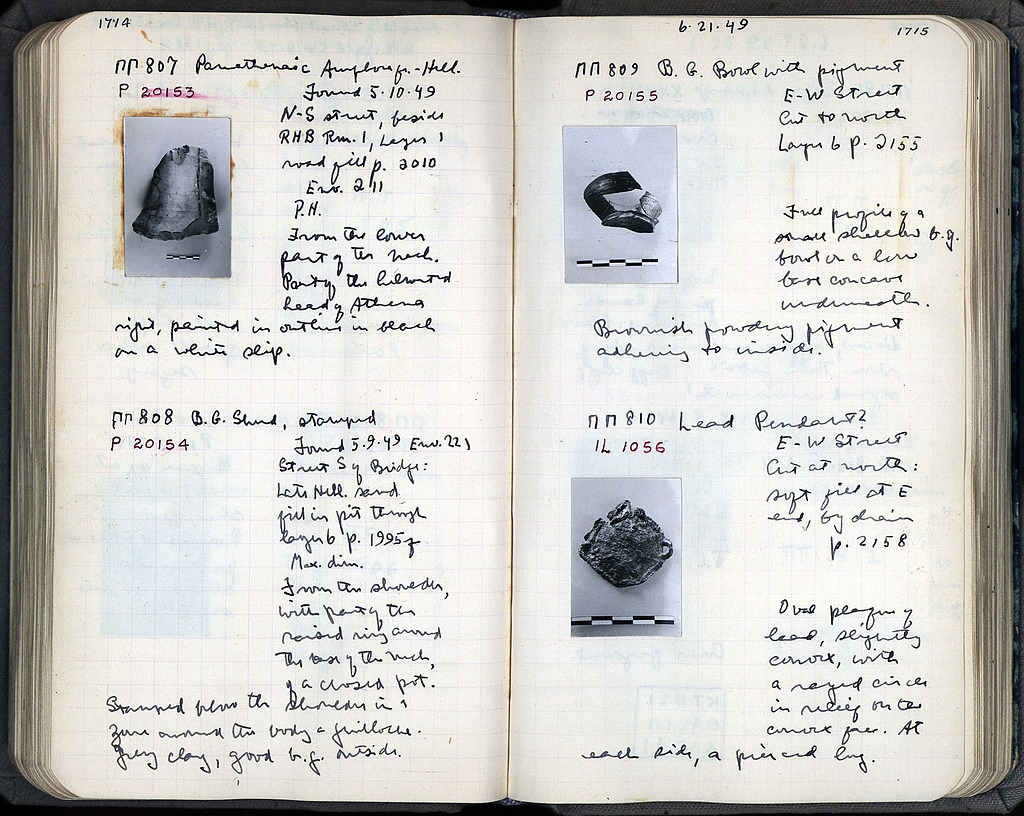 1714
ΠΠ 807 Panathenaic Amphora fr. - Hell.
P 20153 Found 5.10.49
N-S street, beside
RHB Rm. 1, Layer 1
road fill p. 2010
Env. 211
P.H.
From the lower
part of the neck.
Part of the helmeted
head of Athena
right, painted in outline in black
on a white slip.
ΠΠ 808 B.G. Sherd, stamped
P 20154 Found 5.9.49 Env. 221
Street S of Bridge:
Late Hell. sand
fill in pit through
layer 6 p. 1995
Max. dim.
From the shoulder,
with part of the
raised ring around
the base of the neck,
of a closed pot.
Stamped below the shoulder in a
zone around the body a guilloche.
Grey clay, good b.g. outside.
6.21.49
1715
ΠΠ 809 B.G. Bowl with pigment
P 20155 E-W Street
Cut to north
Layer 6 p. 2155
Full profile of a
small shallow b.g.
bowl on a low
base concave
underneath.
Brownish powdery pigment
adhering to inside.
ΠΠ 810 Lead Pendant?
IL 1056 E-W Street
Cut at north:
soft fill at E
end, by drain
p. 2158
Oval plaque of
lead, slightly
convex, with
a rayed circle
in relief on the
convex face. At
each side, a pierced lug.